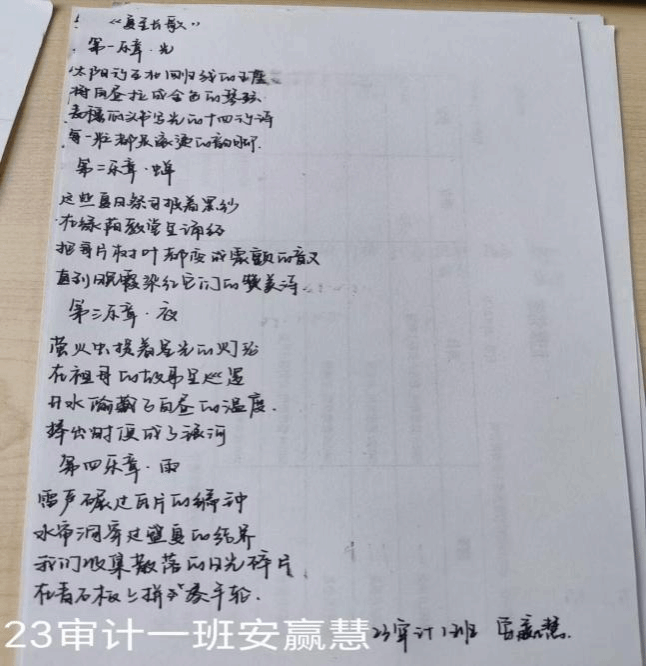 《夏至长歌》
第一乐章·光
太阳行至北回归线的王座
将白昼拉成金色的琴弦
麦穗正以书写光的十四行诗
每一粒都是滚烫的韵脚.
第二乐章·蝉
这些夏日祭司披着黑纱
在绿荫教堂里诵经
把每片树叶都变成震颤的音叉
直到晚霞染红它们的赞美诗
第三乐章·夜
萤火虫提着星光的灯笼
在祖母的故事里巡逻
井水偷藏了白昼的温度.
捧出时便成了银河
第四乐章·雨
雷声碾过瓦片的缝
水帘洞穿过盛夏的结界
我们收集散落的日光碎片
在青石板上拼成年轮.
23审计1班 安赢慧.
23审计一班安赢慧